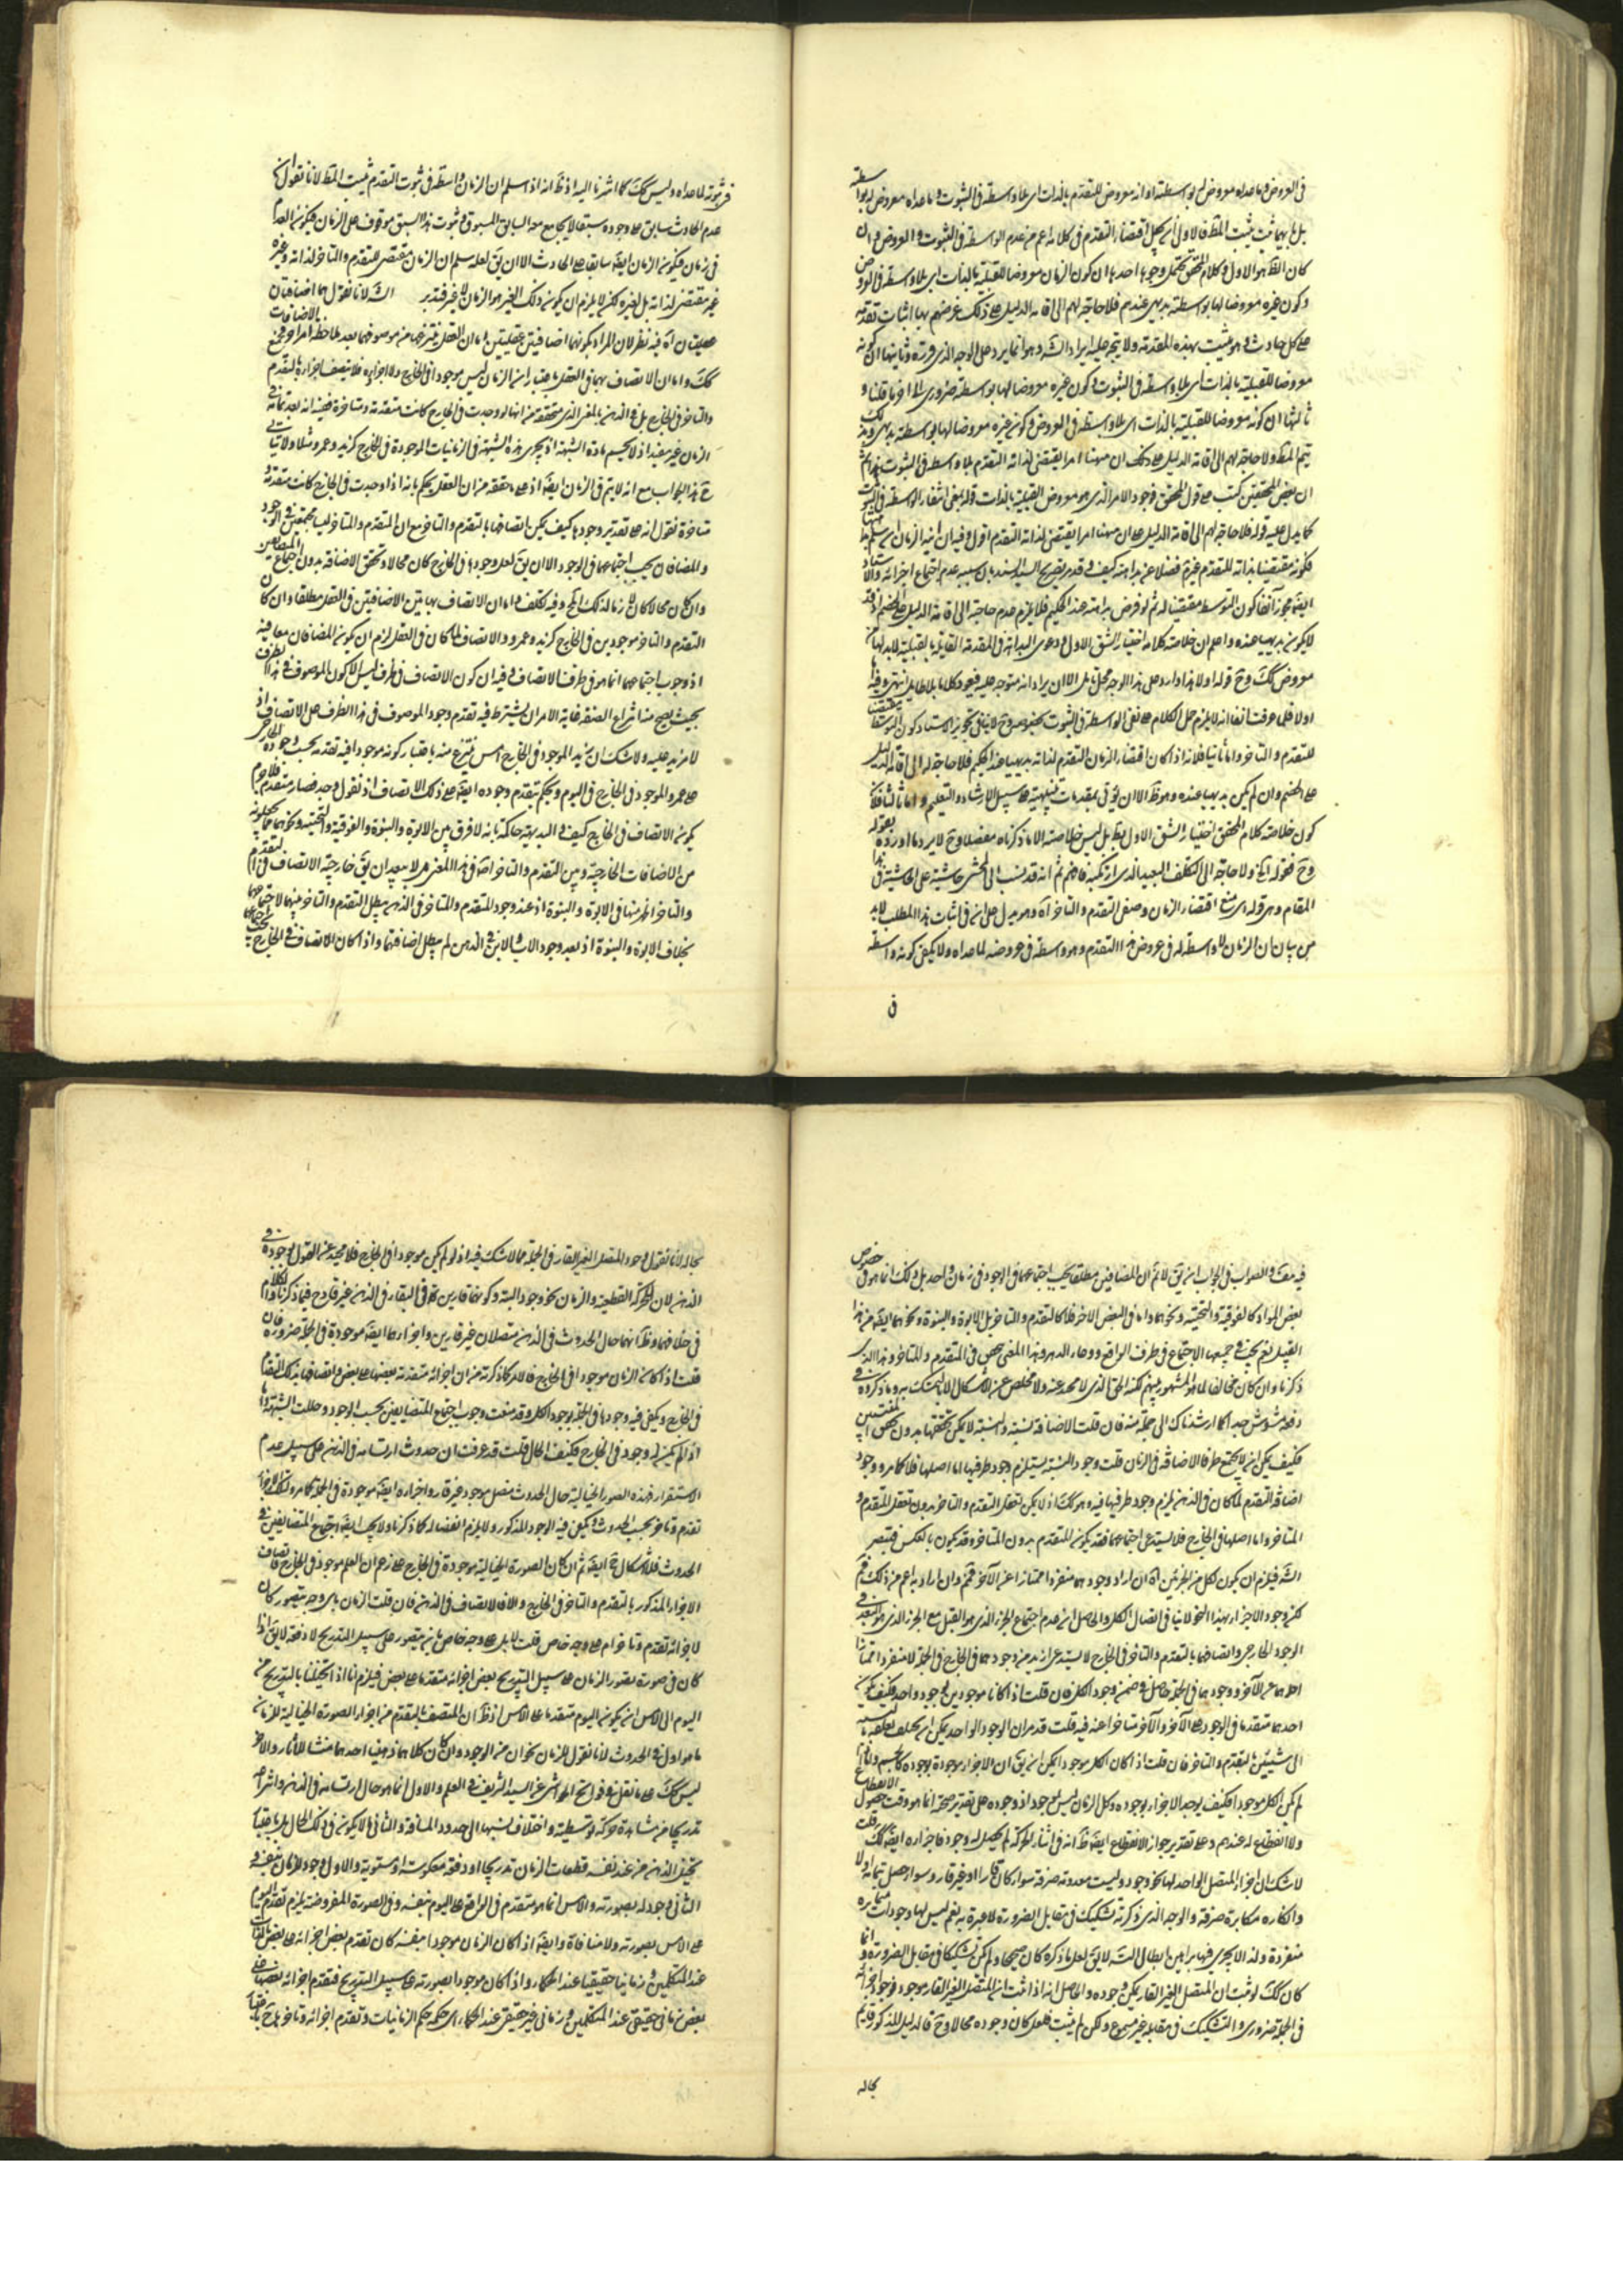 في العروض وما عداه معروض له بواسطة او انه معروض للتقدم بالذات اى بلا واسطة في الثبوت وما عداه معروض له بواسطة
كان الظ هو الاول وكلام المحقق يحتمل وجوها احدها ان كون الزمان معروضا للقبلية بالذات اى بلا واسطة في العروض
وكون غيره معروضا لها بواسطة بديهى عندهم فلا حاجة لهم الى اقامة الدليل على ذلك غرضهم بها اثبات تقدمه
على كل حادث وهو يثبت بهذه المقدمة ولا يتجه عليه ايراد الش وهو انما يرد على الوجه الذى قرره وثانيها ان كونه
معروضا للقبلية بالذات اى بلا واسطة في الثبوت وكون غيره معروضا لها بواسطة ضرورى الى اخر ما قلنا و
ثالثها ان كونه معروضا للقبلية بالذات اى بلا واسطة في العروض وكون غيره معروضا لها بواسطة بديهى وبذلك
يتم المط ولا حاجة لهم الى اقامة الدليل على ذلك ان ههنا امرا يقتضى لذاته التقدم بلا واسطة في الثبوت
ان بعض المحققين كتب على قول المحقق وجود الامر الذى هو معروض القبلية بالذات قوله يعنى انتفاء الواسطة في الثبوت
كما يدل عليه قوله فلا حاجة لهم الى اقامة الدليل على ان ههنا امرا يقتضى لذاته التقدم اقول وفيه ان
لا يكون بديهيا عنده واعلم ان خلاصة كلامه اختيار الشق الاول ودعوى البداهة في المقدمة القايلة بالقبلية لابد لها من
اولا فلما عرفت انفا انه لا يلزم حمل الكلام على نفى الواسطة في الثبوت
للتقدم والتاخر واما ثانيا فلانه اذا كان اقتضاء الزمان التقدم لذاته بديهيا عند الحكيم فلا حاجة له الى اقامة الدليل
على الخصم وان لم يكن بديهيا عنده وهو ظ الا ان يؤتى بمقدمات تنبيهية على سبيل الارشاد والتعليم واما ثالثا فلان
كون خلاصة كلام المحقق اختيار الشق الاول بط بل ليس خلاصته الا ما ذكرناه مفصلا وح لا يرد ما اورده بقوله
وح فقوله اه ولا حاجة الى التكلف البعيد الذى ارتكبه فافهم ثم انه قد نسب الى المحشى حاشية على الحاشية في هذا
المقام وهى قوله اى منع اقتضاء الزمان وصفى التقدم والتاخر اه وهو يدل على انه في اثبات هذا المطلب لابد
من بيان ان الزمان لا واسطة له في عروض هذا التقدم وهو واسطة في عروضه لما عداه ولا يكفى كونه واسطة
في
في ثبوته لما عداه وليس كك كما اشرنا اليه اذ ظ انه اذا سلم ان الزمان واسطة في ثبوت التقدم يثبت المط لانا نقول
عدم الحادث سابق على وجوده سبقا لا يجامع معه السابق المسبوق وثبوت هذا السبق موقوف على الزمان فيكون العدم
في زمان فيكون الزمان ايضا سابقا على الحادث الا ان يق لعله سلم ان الزمان مقتضى للتقدم والتاخر لذاته وغيره
غير مقتضى لذاته بل لغيره لكن لا يلزم ان يكون ذلك الغير هو الزمان لا غير فتدبر الش لانا نقول هما اضافيتان
عقليتان اه فيه نظر لان المراد بكونهما اضافيتين عقليتين اما ان العقل ينتزعهما من موصوفهما بعد ملاحظة امر اوقع
كك واما ان الاتصاف بهما في العقل باعتبار ان الزمان ليس موجودا في الخارج ولا اجزائه فلا يتصف اجزاءه بالتقدم
والتاخر في الخارج بل في الذهن بالمعنى الذى محققه من انها لو وجدت في الخارج كانت متقدمة ومتاخرة ففيه انه بعد تمامه في
الزمان غير مفيد اذ لا يحسم مادة الشبهة اذ يجرى هذه الشبهة في الزمانيات الموجودة في الخارج كزيد وعمرو مثلا ولا يتاتى
ح هذا الجواب مع انه لا يتم في الزمان ايضا اذ على ما حققه من ان العقل يحكم بانه اذا وجدت في الخارج كانت متقدمة
متاخرة نقول انه على تقدير وجودها كيف يمكن اتصافها بالتقدم والتاخر مع ان المتقدم والمتاخر ليسا مجتمعين في الوجود
والمضافان يجب اجتماعهما في الوجود الا ان يق لعل وجودها في الخارج كان محالا وتحقق الاضافة بدون اجتماع المضافين
التقدم والتاخر موجودين في الخارج كزيد وعمرو والاتصاف لما كان في العقل لزم ان يكون المضافان معا فيه
اذ وجوب اجتماعهما انما هو في ظرف الاتصاف وفيه ان كون الاتصاف في ظرف ليس الا كون الموصوف في هذا الظرف
بحيث يصح منه انتزاع الصفة غاية الامر ان يشترط فيه تقدم وجود الموصوف في هذا الظرف على الاتصاف اذ
لا مزيد عليه ولا شك ان زيد الموجود في الخارج امس ينتزع منه باعتبار كونه موجودا فيه تقدمه بحسب وجوده الخارجى
على عمرو الموجود في الخارج في اليوم ويحكم بتقدم وجوده ايضا على ذلك الاتصاف اذ نقول وجد فصار متقدما فلا جرم
يكون الاتصاف في الخارج كيف والبديهة حاكمة بانه لا فرق بين الابوة والبنوة والفوقية والتحتية ونحوهما مما يجعلونه
من الاضافات الخارجية وبين التقدم والتاخر اه في هذا المعنى
والتاخر اظهر منها في الابوة والبنوة اذ عند وجود المتقدم والمتاخر في الذهن
بخلاف الابوة والبنوة اذ بعد وجود الاب والابن في الذهن لم يبطل اضافتهما واذا كان الاتصاف في الخارج
فيه مفر والصواب في الجواب ان يق لا نم ان المضافين مطلقا يجب اجتماعهما في الوجود في زمان واحد بل ذلك انما هو في خصوص
بعض المواد كالفوقية والتحتية ونحوهما واما في البعض الاخر فلا كالتقدم والتاخر بل الابوة والبنوة ونحوهما ايضا من هذا
القبيل نعم يجب في جميعها الاجتماع في ظرف الواقع ووعاء الدهر وهذا المعنى
ذكرنا وان كان مخالفا لما هو المشهور بينهم لكنه الحق الذى لا محيد عنه ولا مخلص عن الاشكال الا بالتمسك به وما ذكروه في
دفعه مشوش جدا كما ارشدناك الى جملة منه فان قلت الاضافة نسبة والنسبة لا يمكن تحققها بدون تحقق المنتسبين
فكيف يمكن ان لا يجتمع طرفا الاضافة في الزمان قلت وجود النسبة يستلزم وجود طرفيها اما اصلها فلا كما مر ووجود
اضافة التقدم لما كان في الذهن يلزم وجود طرفيها فيه وهو كك اذ لا يمكن تعقل التقدم والتاخر بدون تعقل المتقدم و
المتاخر واما اصلها في الخارج فلا يستدعى اجتماعهما فقد يكون المتقدم بدون المتاخر وقد يكون بالعكس فتبصر
الش فيلزم ان يكون لكل من الجزئين اه ان اراد وجودهما منفردا ممتازا عن الاخر فمم وان اراد به اعم من ذلك فمم
لكن وجود الاجزاء بهذا النحو لا ينافى اتصال الكل والحاصل ان عدم اجتماع الجزء الذى هو القبل مع الجزء الذى هو البعد في
الوجود الخارجى واتصافهما بالتقدم والتاخر في الخارج لا يستدعى ازيد من وجودهما في الخارج في الجملة لا منفردا ممتازا
احدهما عن الاخر ووجودهما في الجملة حاصل في ضمن وجود الكل فان قلت اذا كانا موجودين بوجود واحد فكيف يكون
احدهما متقدما في الوجود على الاخر والاخر متاخرا عنه فيه قلت قد مر ان الوجود الواحد يمكن ان يختلف تعلقه بالنسبة
الى شيئين بالتقدم والتاخر فان قلت اذا كان الكل موجودا يمكن ان يق ان الاجزاء موجودة بوجوده كالجسم واما اذا
لم يكن الكل موجودا فكيف يوجد الاجزاء بوجوده وكل الزمان ليس بموجود اذ وجوده على تقدير صحته انما هو وقت حصول الانقطاع
ولا انقطاع له عندهم وعلى تقدير جواز الانقطاع ايضا ظ انه في اثناء الحركة لم يحصل له وجود فاجزاءه ايضا كك قلت
لا شك ان اجزاء المتصل الواحد لها نحو وجود وليست معدومة صرفة سواء كان قارا او غير قار وسواء حصل بتمامه اولا
وانكاره مكابرة صرفة والوجه الذى ذكرته تشكيك في مقابل الضرورة لا عبرة به نعم ليس لها وجودات متمايزة
منفردة ولذا لا يجرى فيها براهين ابطال التس لا يق لعل ما ذكره كان صحيحا ولم يكن تشكيكا في مقابل الضرورة وانما
كان كك لو ثبت ان المتصل الغير القار يمكن وجوده والحاصل انه اذا ثبت ان المتصل الغير القار موجود فوجود اجزائه
في الجملة ضرورى والتشكيك في مقابله غير مسموع ولكن لم يثبت فلعل كان وجوده محالا وح فالدليل المذكور قايم
بحاله
بحاله لانا نقول وجود المتصل الغير القار في الجملة مما لا شك فيه اذ لو لم يكن موجودا في الخارج فلا محيد عن القول بوجوده في
الذهن لان الحركة القطعية والزمان نحو وجود البتة وكونهما قارين في البقاء في الذهن غير قادح فيما ذكرنا
في حدوثهما وظ انهما حال الحدوث في الذهن متصلان غير قارين واجزاءهما ايضا موجودة في الجملة ضرورة فان
قلت اذا كان الزمان موجودا في الخارج فالامر كما ذكرته من ان اجزائه متقدمة بعضها على بعض واتصافها بذلك التقدم
في الخارج ويكفى فيه وجودها في الجملة بوجود الكل وقد منعت وجوب اجتماع المتضايفين بحسب الوجود وحللت الشبهة واما
اذا لم يكن له وجود في الخارج فكيف الحال قلت قد عرفت ان حدوث ارتسامه في الذهن على سبيل عدم
الاستقرار فهذه الصور الخيالية حال الحدوث متصل موجود غير قار واجزاءه ايضا موجودة في الجملة كما مر
تقدم وتاخر بحسب الحدوث ويكفى فيه الوجود المذكور ولا يلزم انفصاله كما ذكرنا ولا يجب ايضا اجتماع المتضايفين في
الحدوث فلا اشكال ح ايضا ثم ان كان الصورة الخيالية موجودة في الخارج على زعم ان العلم موجود في الخارج فاتصاف
الاجزاء المذكور بالتقدم والتاخر في الخارج والا فالاتصاف في الذهن فان قلت الزمان باى وجه يتصور كان
لاجزائه تقدم وتاخر ام على وجه خاص قلت لا بل على وجه خاص بانه يتصور على سبيل التدريج لا دفعة لا يق اذا
كان في صورة تصور الزمان على سبيل التدريج بعض اجزائه متقدما على بعض فيلزم انا اذا تخيلنا بالتدريج من
اليوم الى الامس ان يكون اليوم متقدما على الامس اذ ظ ان المتصف بالتقدم من اجزاء الصورة الخيالية للزمان
ما هو اول في الحدوث لانا نقول للزمان نحوان من الوجود وان كان كلاهما ذهنيا احدهما منشا للاثار والاخر
ليس كك على ما نقل في فواتح الحواشى عن السيد الشريف في العلم والاول انما هو حال ارتسامه في الذهن وانتزاعه
تدريجا من مشاهدة حركة توسطية واختلاف نسبها الى حدود المسافة والثانى ما لا يكون في ذلك الحال بل باعتبار
تخيل الذهن من عند نفسه قطعات الزمان تدريجا او دفعة معكوسة او مستوية والاول وجود للزمان بنفسه و
الثانى وجود له بصورته والامس انما هو متقدم في الواقع على اليوم بنفسه وفي الصورة المفروضة يلزم تقدم اليوم
على الامس بصورته ولا منافاة وايضا اذا كان الزمان موجودا بنفسه كان تقدم بعض اجزائه على بعض بالذات
عند المتكلمين وزمانيا حقيقيا عند الحكماء واذا كان موجودا بصورته على سبيل التدريج فتقدم اجزائه بعضها على
بعض زمانى حقيقى عند المتكلمين وزمانى غير حقيقى عند الحكماء اى حكمه حكم الزمانيات وتقدم اجزائه وتاخرها ح باعتبار